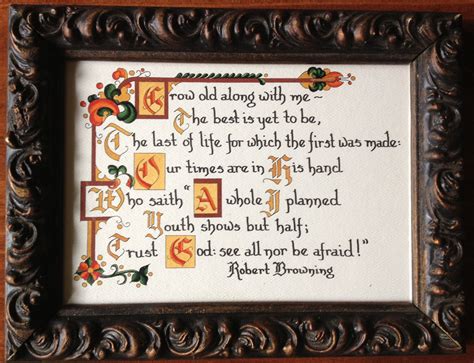 Grow old along with me~
The best is yet to be,
The last of life for which the first was made:
Our times are in His hand
Who saith "A whole I planned
Youth shows but half;
Trust God: see all nor be afraid!"
Robert Browning